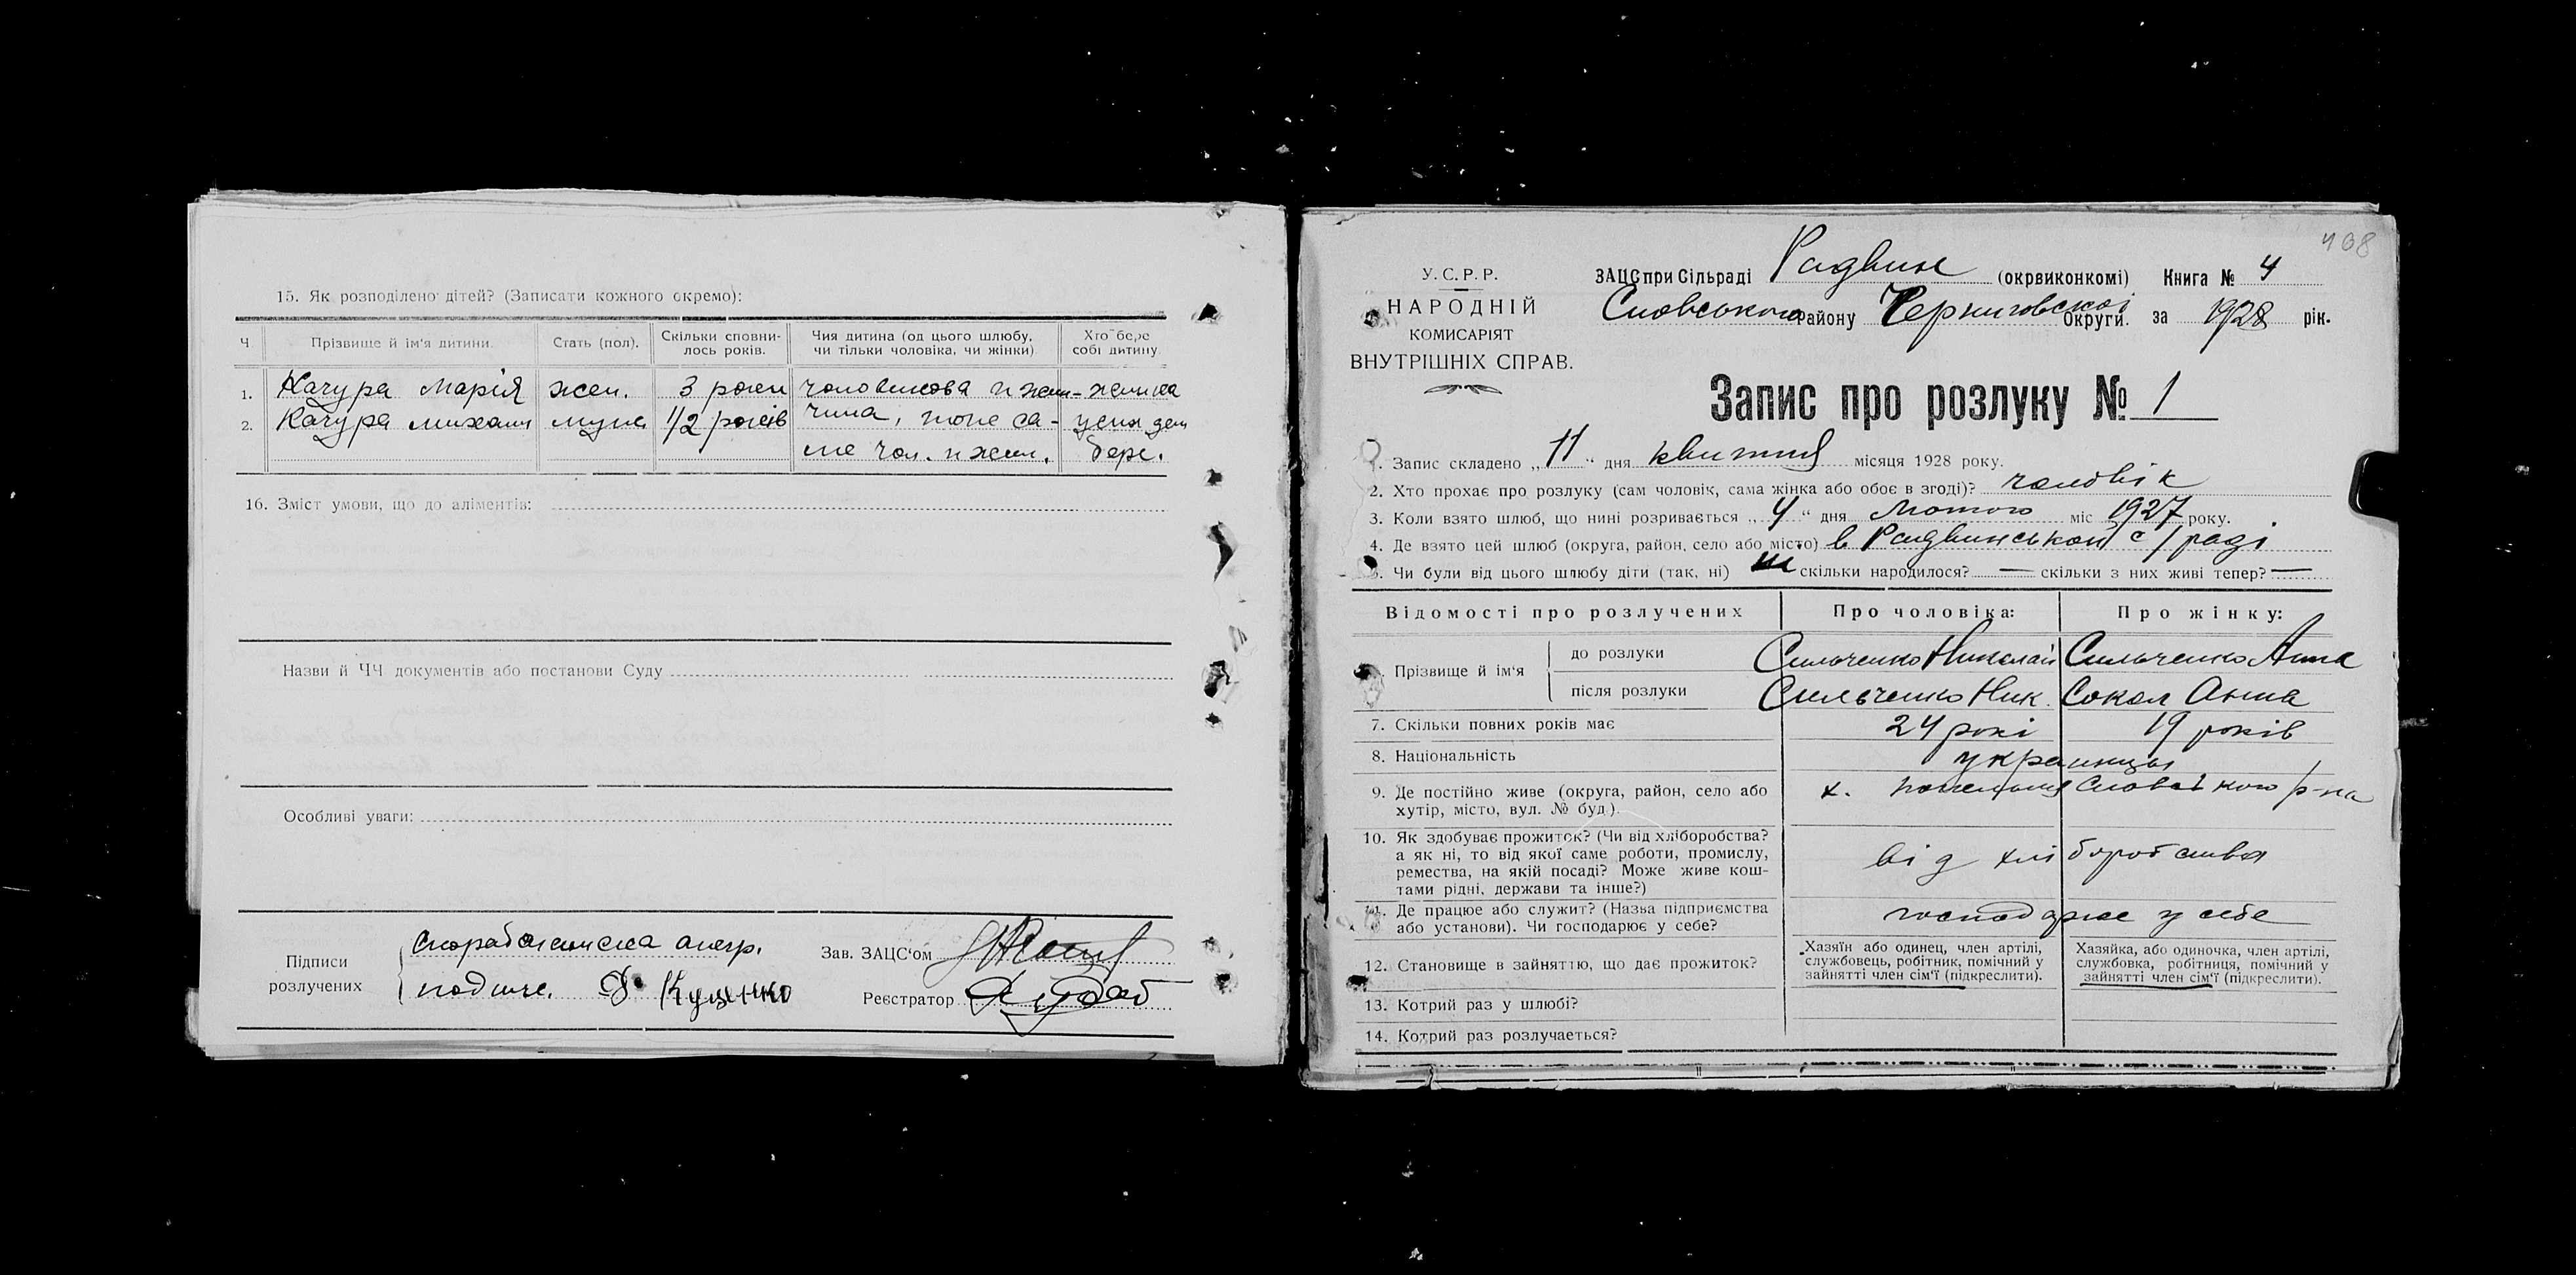 15. Як розподілено дітей? (Записати кожного окремо):
Ч. Прізвище й ім'я дитини. Стать (пол). Скільки сповнилось років. Чия дитина (од цього шлюбу, чи тільки чоловіка, чи жінки) Хто бере собі дитину.
1. Качура Марія жен. 3 роки чоловикова и жен-
2. Качура михаил муж 1/2 років чина, тоже са-
ме чол. и жен. бере.
16. Зміст умови, що до аліментів:
Назви й ЧЧ документів або постанови Суду
Особливі уваги:
Підписи розлучених
подпис. Куценко
Зав. ЗАЦС'ом
Реєстратор
408
У.С.Р.Р.
НАРОДНІЙ
КОМИСАРІЯТ
ВНУТРІШНІХ СПРАВ.
ЗАЦС при Сільраді Радвин (окрвиконкомі) Книга № 4
району Черниговскоі Округи. за 1928 рік.
Запис про розлуку № 1
1. Запис складено „11" дня квитня місяця 1928 року.
2. Хто прохає про розлуку (сам чоловік, сама жінка або обоє в згоді)? чоловік
3. Коли взято шлюб, що нині розривається „4" дня Лютого міс 1927 року.
4. Де взято цей шлюб (округа, район, село або місто) в Радвинськой с/раді
5. Чи були від цього шлюбу діти (так, ні) ні скільки народилося? — скільки з них живі тепер? —
Відомості про розлучених Про чоловіка: Про жінку:
6. Прізвище й ім'я до розлуки Сильченко Николай Сильченко Анна
після розлуки Сильченко Ник. Сокол Анна
7. Скільки повних років має 24 рокі 19 років
8. Національність украинцы
9. Де постійно живе (округа, район, село або хутір, місто, вул. № буд.). х. р-на
10. Як здобуває прожиток? (Чи від хліборобства? а як ні, то від якої саме роботи, промислу, ремества, на якій посаді? Може живе коштами рідні, держави та інше?) від хліборобства
11. Де працює або служит? (Назва підприємства або установи). Чи господарює у себе? господарює у себе
12. Становище в зайняттю, що дає прожиток?
Хазяїн або одинец, член артілі, службовець, робітник, помічний у зайнятті член сім'ї (підкреслити).
Хазяйка, або одиночка, член артілі, службовка, робітниця, помічний у зайнятті член сім'ї (підкреслити).
13. Котрий раз у шлюбі?
14. Котрий раз розлучається?